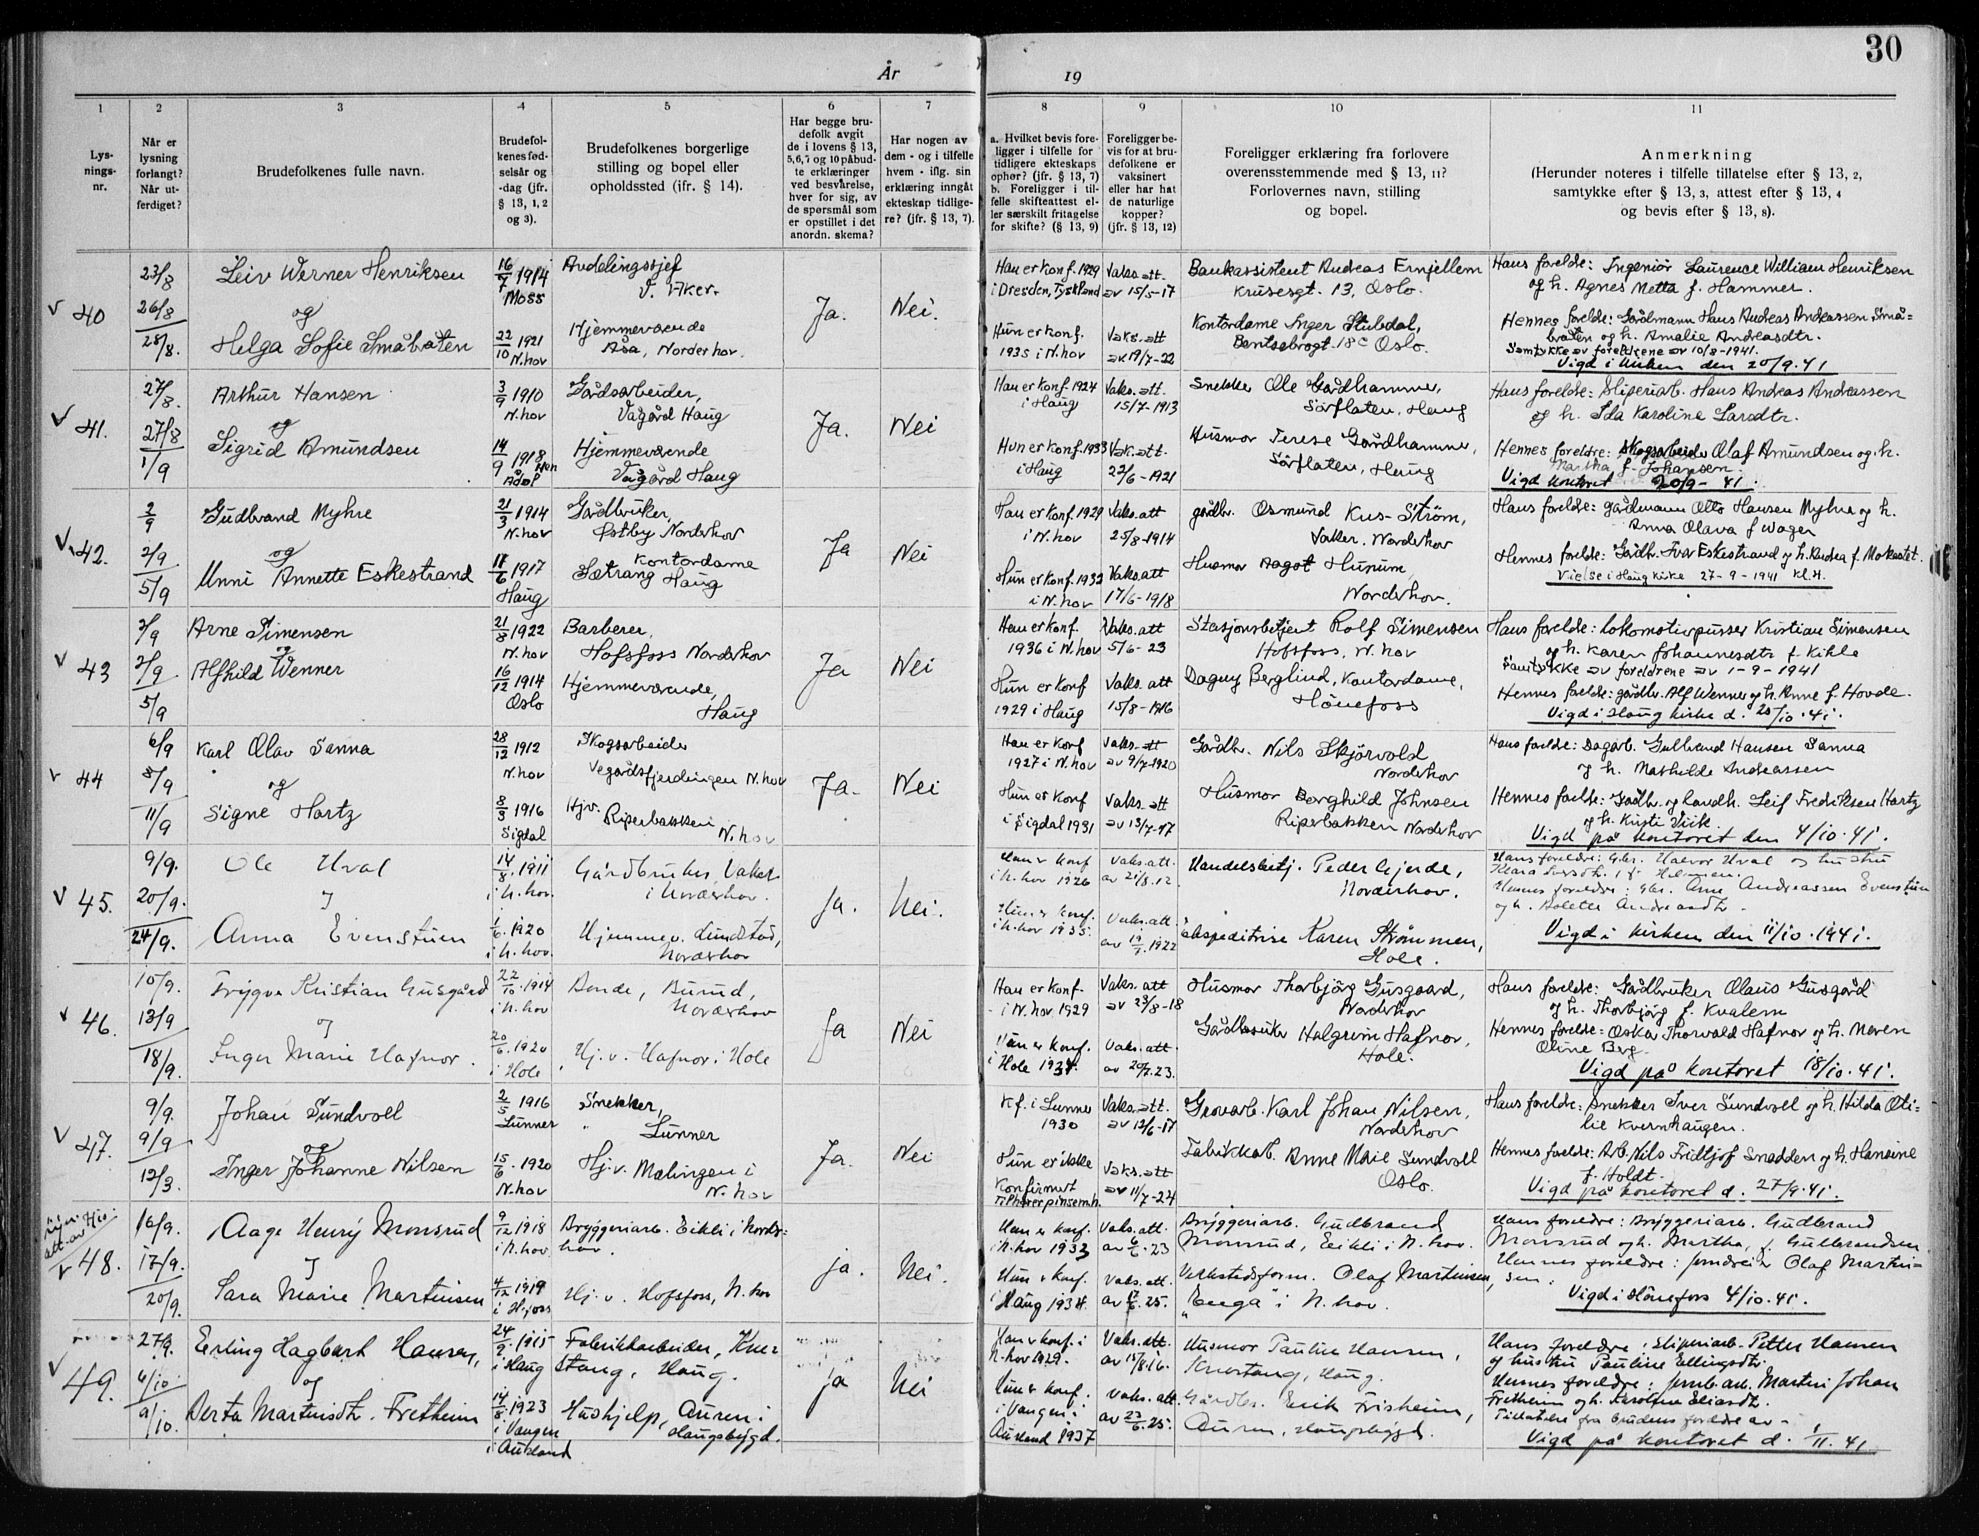 30
År
19
1
2
3
4
5
6
7
8
9
10
11
Lys-
nings-
nr.
Når er
lysning
forlangt?
Når ut-
ferdiget?
Brudefolkenes fulle navn.
Brudefol-
kenes fød-
selsår og
-dag (jfr.
§ 13, 1, 2
og 3).
Brudefolkenes borgerlige
stilling og bopel eller
opholdssted (ifr. § 14).
Har begge bru-
defolk avgit
de i lovens § 13,
5, 6, 7 og 10 påbud-
te erklæringer
ved besvarelse,
hver for sig, av
de spørsmål som
er opstillet i det
anordn. skema?
Har nogen av
dem - og i tilfelle
hvem - iflg. sin
erklæring inngåt
ekteskap tidlige-
re? (jfr. § 13, 7).
a. Hvilket bevis fore-
ligger i tilfelle for
tidligere ekteskaps
ophør? (jfr. § 13, 7)
b. Foreligger i til-
felle skifteattest el-
ler særskilt fritagelse
for skifte? (§ 13, 9)
Foreligger be-
vis for at bru-
defolkene er
vaksinert
eller har hat
de naturlige
kopper?
(jfr. § 13, 12)
Foreligger erklæring fra forlovere
overensstemmende med § 13, 11?
Forlovernes navn, stilling
og bopel.
Anmerkning
(Herunder noteres i tilfelle tillatelse efter § 13, 2,
samtykke efter § 13, 3, attest efter § 13, 4
og bevis efter § 13, 8).
v 40
23/8
26/8
28/8.
Leiv Werner Henriksen
og
Helga Sofie Småbråten
16/7 1914
Moss
22/10 1921
N.hov
Avdelingssjef
V. Aker.
Hjemmeværende
Åsa, Norderhov.
Ja.
Nei.
Han er konf. 1929
i Dresden, Tyskland
Hun er konf.
1935 i N.hov
Vaks. att.
av 15/5-17
Vaks. att
av 19/7-22
Bankassistent Andreas Ernjellem
Krusesgt. 13, Oslo.
Kontordame Inger Stubdal,
Bentsebrogt. 18c Oslo.
Hans foreldre: Ingeniør Laurence William Henriksen
og h. Agnes Metta f. Hammer.
Hennes foreldre: Gårdmann Hans Andreas Andreassen Små-
bråten og h. Amalie Andreasdtr.
Samtykke av foreldrene av 10/8-1941.
Vigd i kirken den 20/9.41
v 41.
27/8.
27/8
1/9
Arthur Hansen
og
Sigrid Amundsen
3/9 1910
N.hov
14/9 1918
Hen
Ådal
Gårdsarbeider,
Vågård Haug
Hjemmeværende
Vågård Haug
Ja.
Nei
Han er konf. 1924
i Haug
Hun er konf. 1933
i Haug
Vaks. att.
15/7-1913
Vak. att.
22/6-1921
Snekker Ole Gårdhammer,
Sørflaten, Haug
Husmor Terese Gårdhammer,
Sørflaten, Haug
Hans foreldre: Sliperiarb. Hans Andreas Andreassen
og h. Ida Karoline Larsdtr.
Hennes foreldre: Skogsarbeider Olaf Amundsen og h.
Martha f. Johansen.
Vigd kontoret 20/9-41.
v 42.
2/9
2/9
5/9
Gudbrand Myhre
og
Unni Annette Eskestrand
21/3 1914
N.hov
11/6 1917
Haug
Gårdbruker,
Østby Norderhov
Kontordame
Sætrang Haug
Ja
Nei
Han er konf. 1929
i N.hov
Hun er konf. 1932
i N.hov
Vaks. att
25/8-1914
Vaks. att
17/6-1918
gårdbr. Osmund Kus-Strøm,
Vaker, Norderhov
Husmor Aagot Hunum,
Norderhov.
Hans foreldre: gårdmann Otto Hansen Myhre og h.
Anna Olava f Wager
Hennes foreldre: Gårdbr. Ivar Eskestrand og h. Andrea f. Mokastet.
Vielse i Haug kirke 27-9-1941 kl. 4.
v 43
2/9
2/9
5/9
Arne Simensen
og
Alfhild Wenner
21/8 1922
N.hov
16/12 1914
Oslo
Barberer,
Hofsfoss Norderhov
Hjemmeværende,
Haug
Ja
Nei
Han er konf.
1936 i N.hov
Hun er konf
1929 i Haug
Vaks. att
5/6-23
Vaks. att
15/8-1916
Stasjonsbetjent Rolf Simensen
Hofsfoss, N.hov
Dagny Berglind, Kontordame,
Hønefoss
Hans foreldre: Lokomotivpusser Kristian Simensen
og h. Karen Johannesdtr f. Kihle
Samtykke av foreldrene av 1-9-1941
Hennes foreldre: gårdbr. Alf Wenner og h. Anne f. Hovde.
Vigd i Haug kirke d. 25/10.41.
v 44
6/9
8/9
11/9
Karl Olav Sanna
og
Signe Hartz
28/12 1912
N.hov
8/3 1916
Sigdal
Skogsarbeider
Vegårdsfjerdingen N.hov
Hjv.
Riperbakken
N.hov
Ja.
Nei
Han er konf
1927 i N.hov
Hun er konf
i Sigdal 1931
Vaks. att
av 9/7-1920
Vaks. att
av 13/7-17
Gårdbr. Nils Skjørvold
Norderhov
Husmor Borghild Johnsen
Riperbakken Norderhov
Hans foreldre: Dagarb. Gulbrand Hansen Sanna
og h. Mathilde Andreassen
Hennes foreldre: Gårdbr. og landh. Leif Fredriksen Hartz
og h. Kirsti Viik.
Vigd på kontoret den 4/10.41.
v 45.
9/9.
20/9.
24/9.
Ole Hval
og
Anna Evenstuen
14/8. 1911
i N.hov.
1/6. 1920
i N.hov.
Gårdbruker, Vaker
i Norderhov.
Hjemmev. Lundstad,
Norderhov
Ja.
Nei.
Han er konf
i N.hov 1926
Hun er konf.
i N.hov 1935.
Vaks. att.
av 21/8.12.
Vaks. att.
av 19/7 1922
Handelsbetj. Peder Gjerde,
Norderhov.
Ekspeditrise Karen Strømmen,
Hole.
Hans foreldre: Gbr. Halvor Hval og hustru
Hennes foreldre: gbr. Arne Andreassen Evenstuen
og h. Andreasdtr.
Vigd i kirken den 11/10.1941.
v 46.
10/9.
13/9
18/9.
Trygve Kristian Gusgård
og
Inger Marie Hafnor.
22/10. 1914
i N.hov
20/6. 1920
i Hole
Bonde, Burud,
Norderhov
Hj.v. Hafnor i Hole
Ja
Nei
Han er konf.
i N.hov 1929
Hun er konf.
i Hole 1934.
Vaks. att
av 23/8-18
Vaks. att.
av 20/7.23.
Husmor Thorbjørg Gusgaard,
Norderhov
Gårdbruker Halgrim Hafnor,
Hole.
Hans foreldre: Gårdbruker Olaus Gusgård
og h. Thorbjørg f. Kvalem
Hennes foreldre: Oskar Thorvald Hafnor og h. Maren
Oline Berg.
Vigd på kontoret 18/10.41.
v 47.
9/9.
9/9
12/3.
Johan Sundvoll
og
Inger Johanne Nilsen
2/5 1916
Lunner
15/6. 1920
N.hov
Snekker,
Lunner
Hj.v. Mælingen i
N.hov
Ja.
Nei
Kf. i Lunner
1930
Hun er ikke
konfirmert
Tilhører pinsemh.
Vaks. att.
av 12/6-17
Vaks. att
av 11/7-24
Grovarb. Karl Johan Nilsen,
Norderhov
Fabrikkarb. Anne Marie Sundvoll
Oslo.
Hans foreldre: Snekker Iver Sundvoll og h. Hilda Oti-
lie Kvernhaugen.
Hennes foreldre: Arb. Nils Fridtjof Snadden og h. Hansine
f. Holdt.
Vigd på kontoret d. 27/9.41.
v 48.
16/9.
17/9.
20/9.
Aage Henry Monsrud
og
Sara Marie Martinsen
9/12 1918
i N.hov.
4/12 1919
i H.foss
Bryggeriarb. Eikli i Norder-
hov.
Hj.v. Hofsfoss, N.hov
ja.
Nei.
Han er konf.
i N.hov 1933
Hun er konf.
i Haug 1934.
Vaks. att.
av 6/6.23
Vaks. att.
av 17/6.25.
Bryggeriarb. Gudbrand
Monsrud, Eikli i N.hov.
Verkstedsform. Olaf Martinsen,
"Enga" i N.hov.
Hans foreldre: Bryggeriarb. Gudbrand
Monsrud og h. Martha, f. Gulbrandsen
Hennes foreldre: Olaf Martin-
sen.
Vigd i Hønefoss 4/10.41.
v 49.
27/9.
4/10.
9/10.
Erling Hagbart Hansen,
og
Berta Martinsdtr. Fretheim
24/9. 1915
i Haug
14/8. 1923
i Vangen
i Aurland
Fabrikkarbeider, Kne-
stang, Haug.
Hushjelp, Auren i
Haugsbygd.
ja
Nei
Han er konf. i
N.hov 1929.
Hun er konf.
i Vangen i
Aurland 1937
Vaks. att.
av 17/8.16.
Vaks. att.
av 23/6.25.
Husmor Pauline Hansen,
Knestang, Haug.
Gårdbr. Erik Frisheim,
Auren, Haugsbygd.
Hans foreldre: Sliperiarb. Petter Hansen
og hustru Pauline Ellingsdtr.
Hennes foreldre: Jernb.arb. Martin Johan
Fretheim og h. Eliasdtr.
Tillatelse fra brudens foreldre av -
Vigd på kontoret d. 1/11.41.